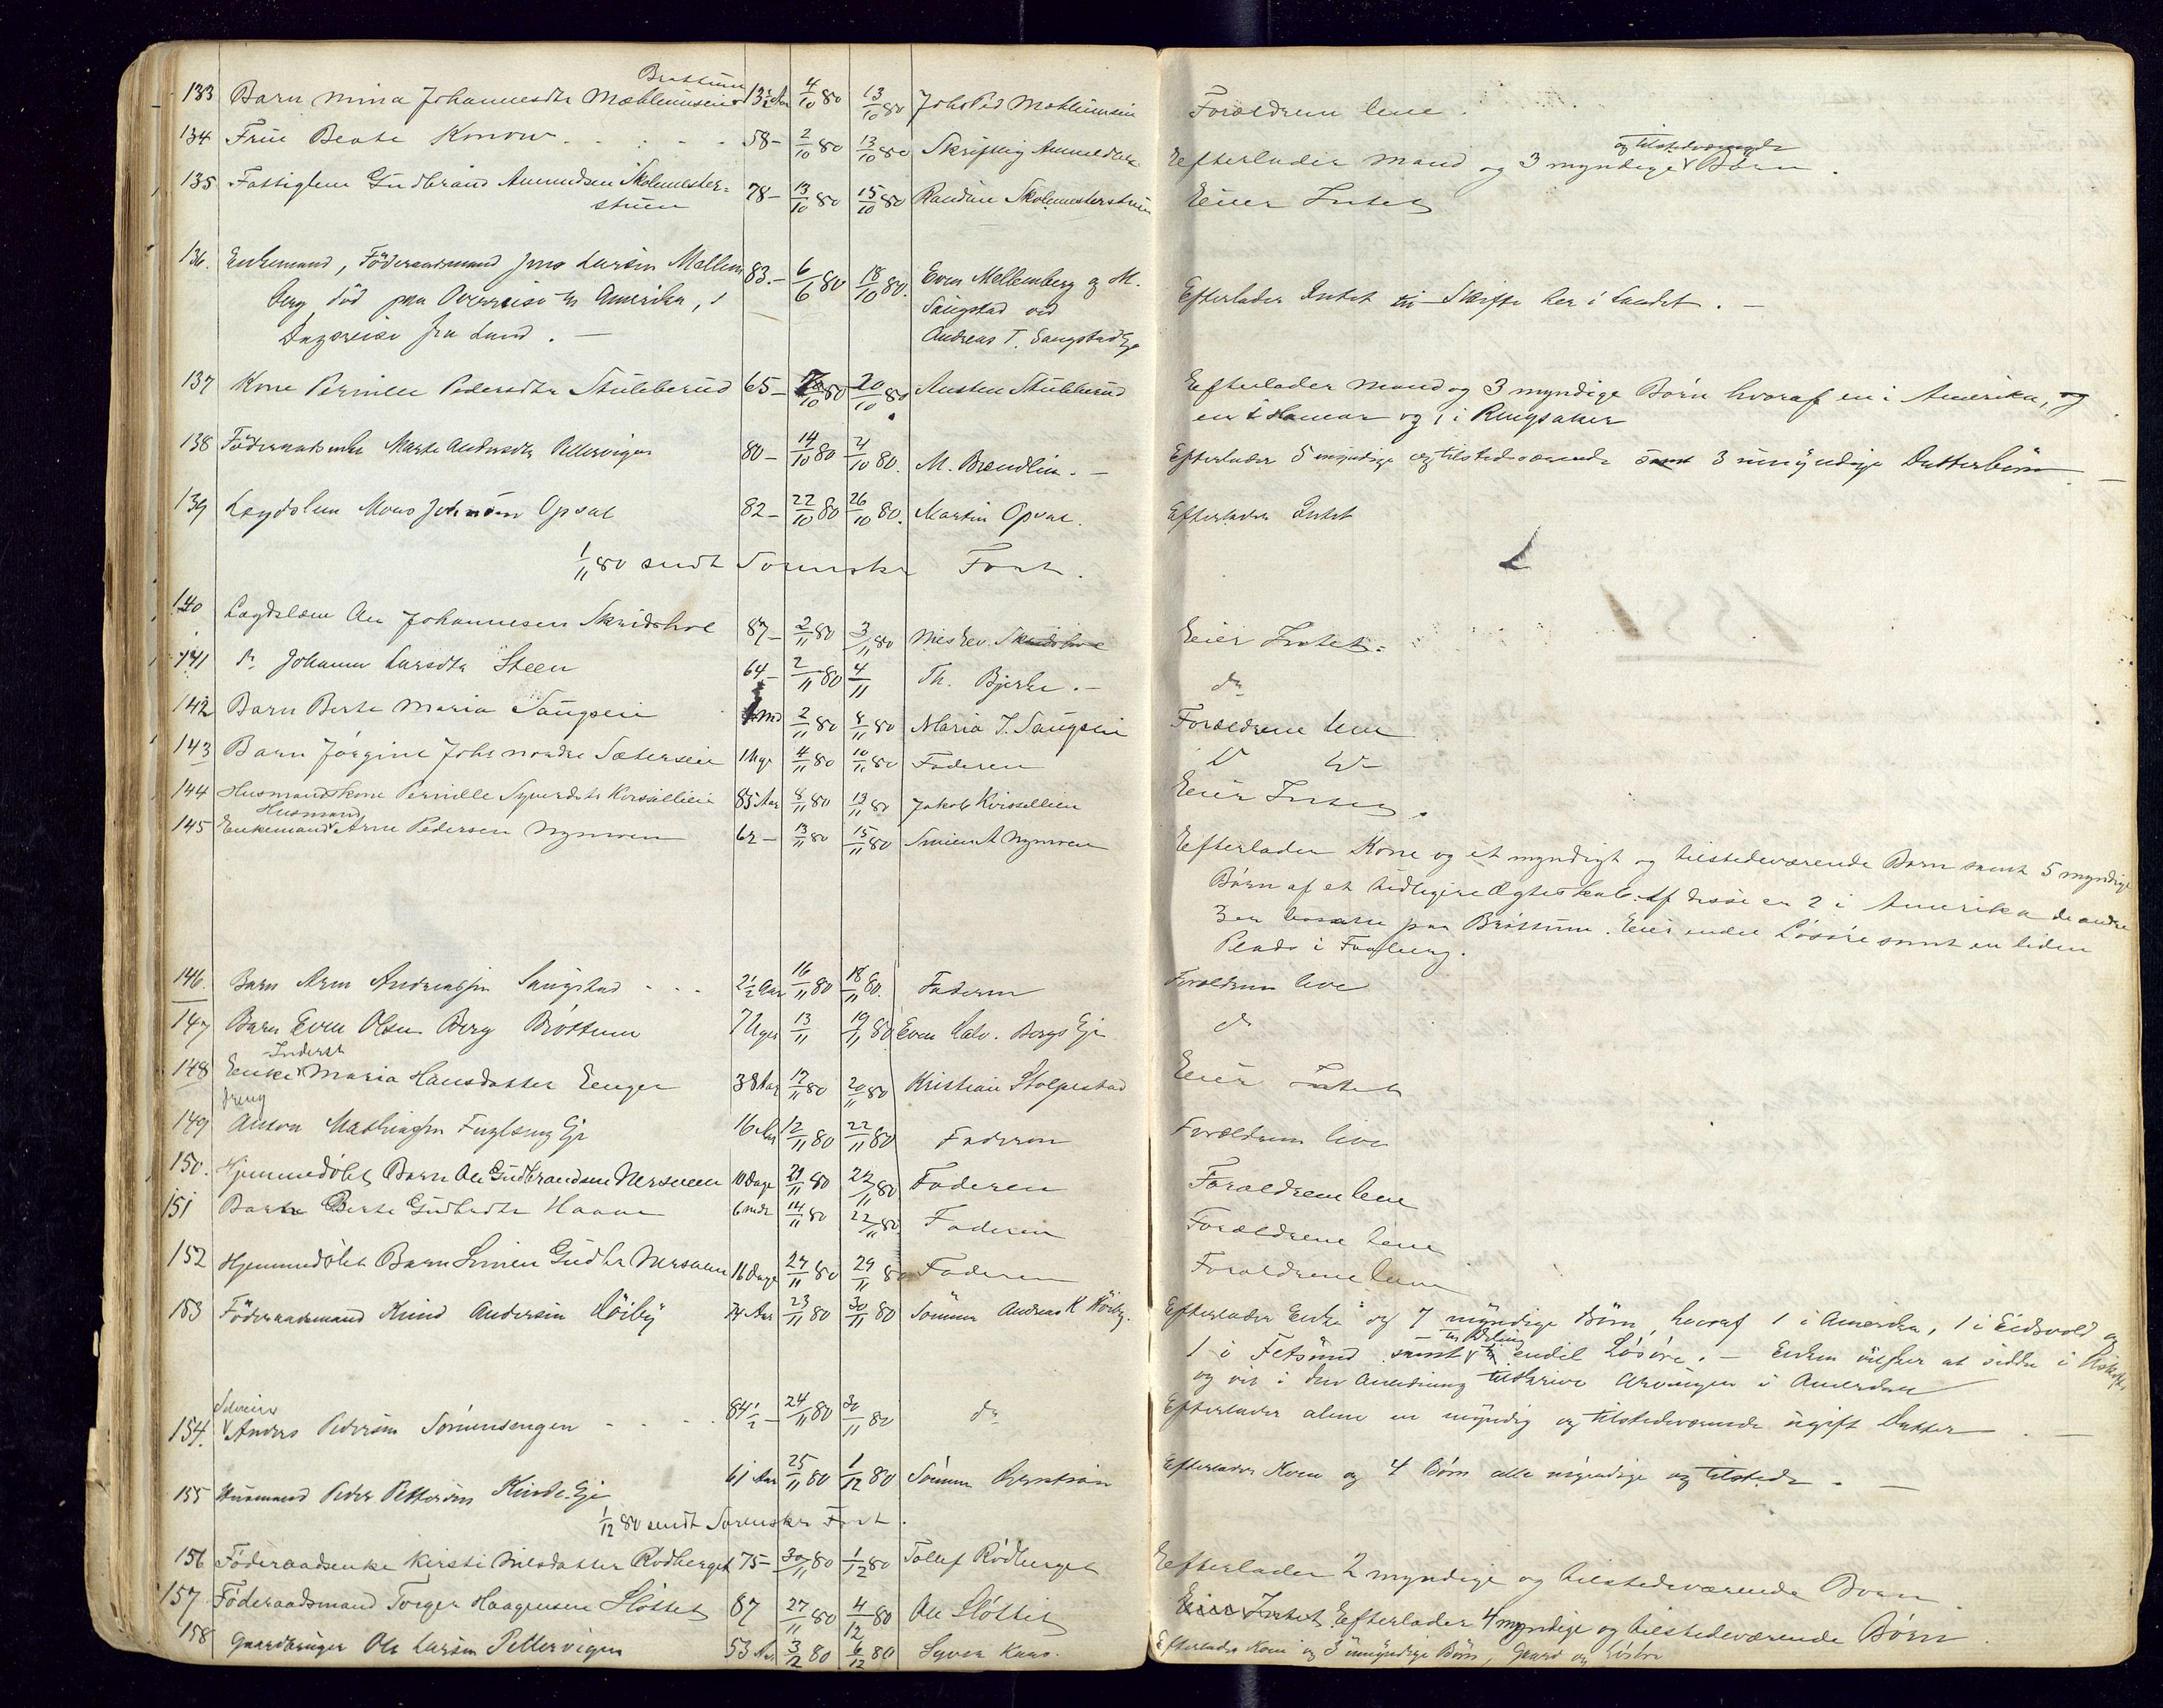 Brøttum
133 Barn Mina Johannesdtr Mæhlumseie 13½ Aar 4/10 80 13/10 80 Johs Ped Mæhlumseie Forældrene leve.
134 Frue Beate Konow 58 - 2/10 80 13/10 80 Skriftlig Anmeldelse Efterlader Mand og 3 myndige og tilstedeværende Børn.
135 Fattiglem Gudbrand Amundsen Skolmester-
stuen 78 - 13/10 80 15/10 80 Randine Skolemesterstuen Eier Intet
136. Enkemand, Föderaadsmand Jens Larsen Mellem 83. - 6/6 80 18/10 80. Even Mellemberg og M. Efterlader Intet til Skifte her i Landet. -
berg död paa Overreise til Amerika, 1 Saugstad ved
Dagsreise fra Land. - Andreas T. Saugstad Eje
137 Kone Pernille Pedersdtr Stubberud 65 - 10 80 20/10 80 Austen Stubberud Efterlader Mand og 3 myndige Børn hvoraf en i Amerika, og
en i Hamar og 1 i Ringsaker
138 Föderaadsenke Marte Andersdtr Pellervigen 80 - 14/10 80 21/10 80. M. Brændlien. - Efterlader 5 myndige og tilstedeværende samt 3 umyndige Datterbörn
139 Lægdslem Mons Johnsen Opsal 82 - 22/10 80 26/10 80. Martin Opsal. Efterlader Intet
1/11 80 sendt Sorenskr Fort.
140 Lægdslem Ole Johannesen Skredshol 87 - 2/11 80 3/11 80 Nils Ev. Skredshol Eier Intet.
141 do Johanne Larsdtr Steen 64 - 2/11 80 4/11 Th. Bjerke. - do
142 Barn Berte Maria Saugseie 2/11 80 8/11 80 Maria J. Saugseie Forældrene leve
143 Barn Jørgine Johs Sæterseie 1 Uge 4/11 80 10/11 80 Faderen do do
144 Husmandskone Pernille Syverdtr Korsvollien 85 Aar 8/11 80 13/11 80 Jakob Eier Intet.
Husmand
145 Enkemand Arne Pedersen Nymoen 62 - 13/11 80 15/11 80 Simen A Nymoen Efterlader Kone og et myndigt og tilstedeværende Barn samt 5 myndige
Børn af et tidligere Ægteskab. Af disse er 2 i Amerika de andre
3 er bosatte paa Brøttum. Eier endel Løsøre samt en liden
Plads i Faaberg.
146. Barn Arne Andreassen Saugstad 2½ Aar 16/11 80 18/11 80. Faderen Forældrene leve
147 Barn Even Olsen Berg Brøttum 7 Uger 13/11 19/11 80 Even Halv. Bergs Eje do
Inderst
148 Enke Maria Hansdatter Eenger 38 Aar 17/11 80 20/11 80 Kristian Stolpestad Eier Intet
Dreng
149 Anton Mathiassen Fuglseng Eje 16 Aar 12/11 80 22/11 80 Faderen Forældrene leve
150. Hjemmedøbt Barn Ole Gudbrandsen Mersveen 10 Dage 21/11 80 22/11 80 Faderen Forældrene leve
151 Barn Berte Gudbrdtr Haave 6 mdr 14/11 80 22/11 80 Faderen Forældrene leve
152 Hjemmedøbt Barn Simen Gudbr Mersveen 16 Dage 27/11 80 29/11 80 Faderen Forældrene leve
153 Föderaadsmand Knud Andersen Höiby 74 Aar 23/11 80 30/11 80 Sönnen Andreas K Höiby. Efterlader Enke og 7 myndige Børn, hvoraf 1 i Amerika, 1 i Eidsvold og
1 i Fetsund samt til Deling endel Løsøre. - Enken ønsker at sidde i Uskiftet
og vil i den Anledning tilskrive Arvingen i Amerika
Selveier
154. Anders Pedersen Sørensengen 84½ - 24/11 80 30/11 80 do Efterlader alene en myndig og tilstedeværende ugift Datter. -
155 Husmand Peder Pettersen Kinde Eje 61 Aar 25/11 80 1/12 80 Sønnen Efterlader Kone og 4 Børn alle myndige og tilstede. -
1/12 80 sendt Sorenskr Fort.
156 Föderaadsenke Kirsti Nilsdatter Rødberget 75 - 30/11 80 1/12 80 Tollef Rødberget Efterlader 2 myndige og tilstedeværende Børn.
157. Föderaadsmand Torger Haagensen Sløttet 87 27/11 80 4/12 80 Ole Sløttet Eier Intet. Efterlader 4 myndige og tilstedeværende Børn.
158 Gaardbruger Ole Larsen Pellervigen 53 Aar 3/12 80 6/12 80 Syver Efterlader Kone og 3 umyndige Børn, Gaard og Løsøre